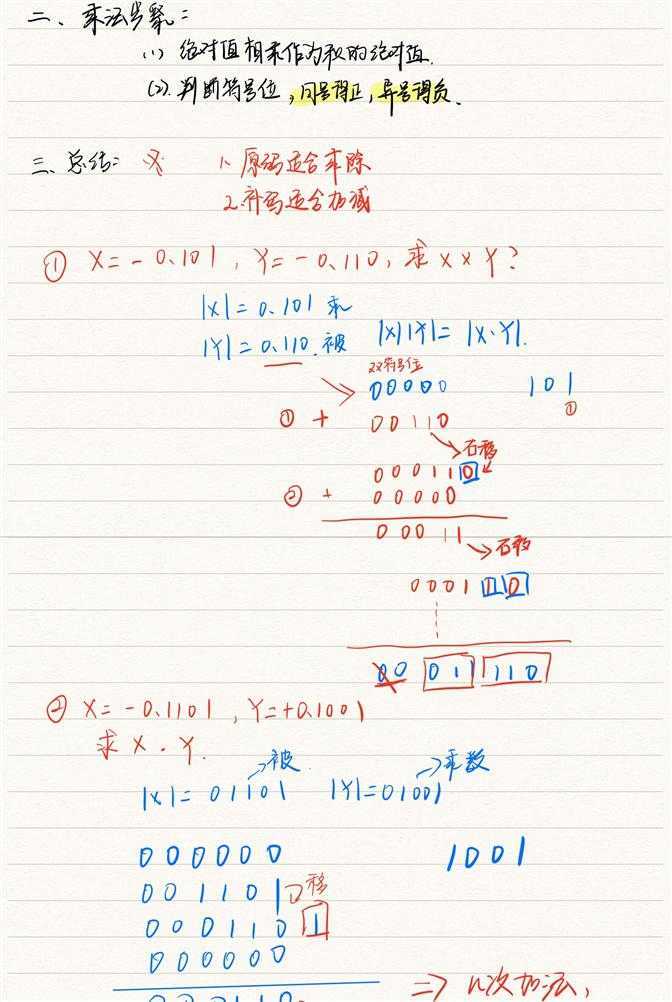 二、乘法步骤：
(1) 绝对值相乘作为积的绝对值.
(2). 判断符号位, 同号得正, 异号得负.
三、总结：
1. 原码适合乘除
2. 补码适合加减
① X=-0.101, Y=-0.110, 求X×Y?
|X|=0.101 乘
|Y|=0.110. 被 |X||Y|=|X·Y|.
双符号位
00000 101
① + 00110 ①
右移
000110
② + 00000
00011
右移
000110
00 01 110
② X=-0.1101, Y=+0.1001
求X·Y.
→被 →乘数
|X|=01101 |Y|=01001
000000 1001
001101 移
000110 1
000000
⇒ n次加法,